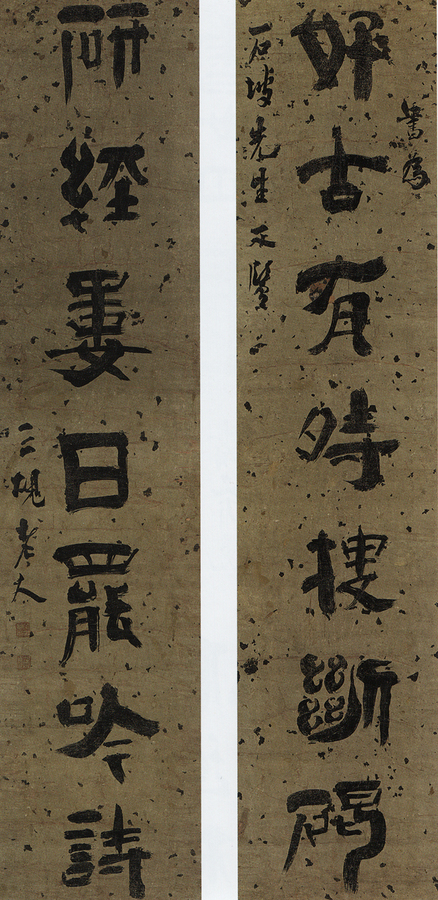 書為
好古有時搜斷碣
石坡先生
研經婁日罷吟詩
三硯老人